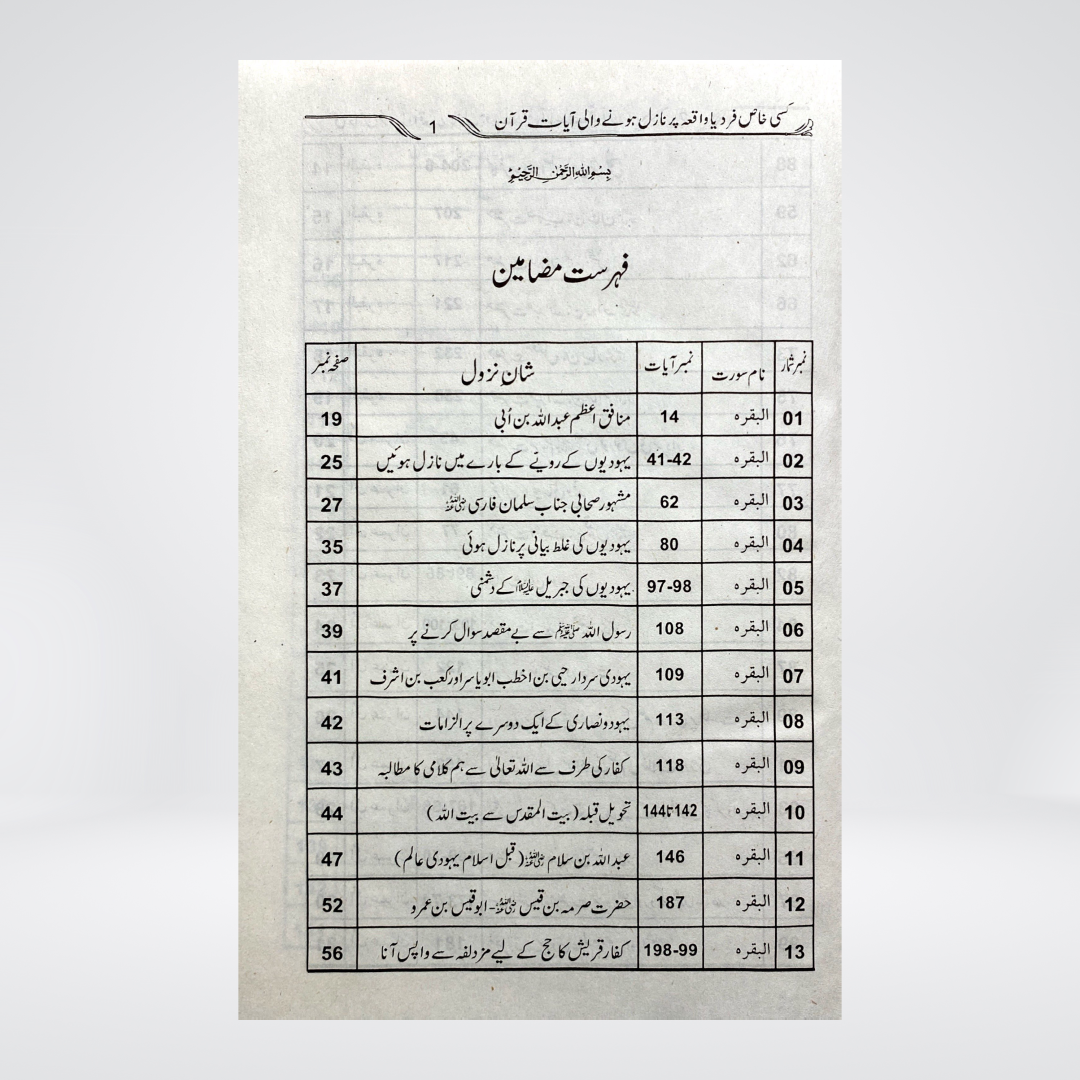 کسی خاص فرد یا واقعہ پر نازل ہونے والی آیات قرآن 1
بسم اللہ الرحمٰن الرحیم
فہرست مضامین
نمبر شمار نام سورت نمبر آیات شانِ نزول صفحہ نمبر
01 البقرہ 14 منافق اعظم عبداللہ بن اُبی 19
02 البقرہ 41-42 یہودیوں کے رویّے کے بارے میں نازل ہوئیں 25
03 البقرہ 62 مشہور صحابی جناب سلمان فارسی رضی اللہ عنہ 27
04 البقرہ 80 یہودیوں کی غلط بیانی پر نازل ہوئی 35
05 البقرہ 97-98 یہودیوں کی جبریل علیہ السلام کے دشمنی 37
06 البقرہ 108 رسول اللہ ﷺ سے بے مقصد سوال کرنے پر 39
07 البقرہ 109 یہودی سردار حیی بن اخطب ابویاسر اور کعب بن اشرف 41
08 البقرہ 113 یہود و نصاری کے ایک دوسرے پر الزامات 42
09 البقرہ 118 کفار کی طرف سے اللہ تعالیٰ سے ہم کلامی کا مطالبہ 43
10 البقرہ 142تا144 تحویل قبلہ (بیت المقدس سے بیت اللہ) 44
11 البقرہ 146 عبداللہ بن سلام رضی اللہ عنہ (قبل اسلام یہودی عالم) 47
12 البقرہ 187 حضرت صرمہ بن قیس رضی اللہ عنہ - ابوقیس بن عمرو 52
13 البقرہ 198-99 کفار قریش کا حج کے لیے مزدلفہ سے واپس آنا 56